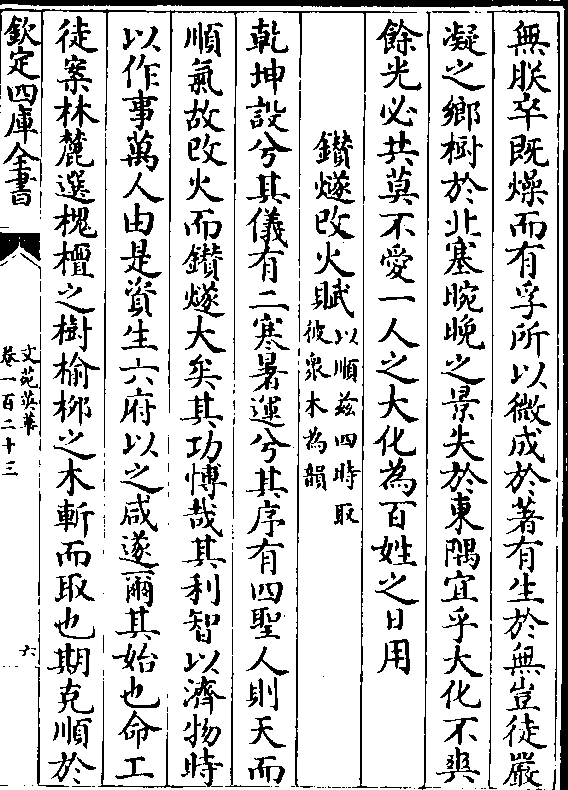 無朕卒既燥而有孚所以微成於著有生於無豈徒嚴
凝之鄉樹於北塞晼晚之景失於東隅宜乎大化不爽
餘光必共莫不愛一人之大化為百姓之日用
鑚燧改火賦以順兹四時取
彼衆木為韻
乾坤設兮其儀有二寒暑運兮其序有四聖人則天而
順氣故改火而鑚燧大矣其功愽哉其利智以濟物時
以作事萬人由是資生六府以之咸遂爾其始也命工
徒案林麓選槐檀之樹榆栁之木斬而取也期克順於
欽定四庫全書
文苑英華
卷一百二十三
六